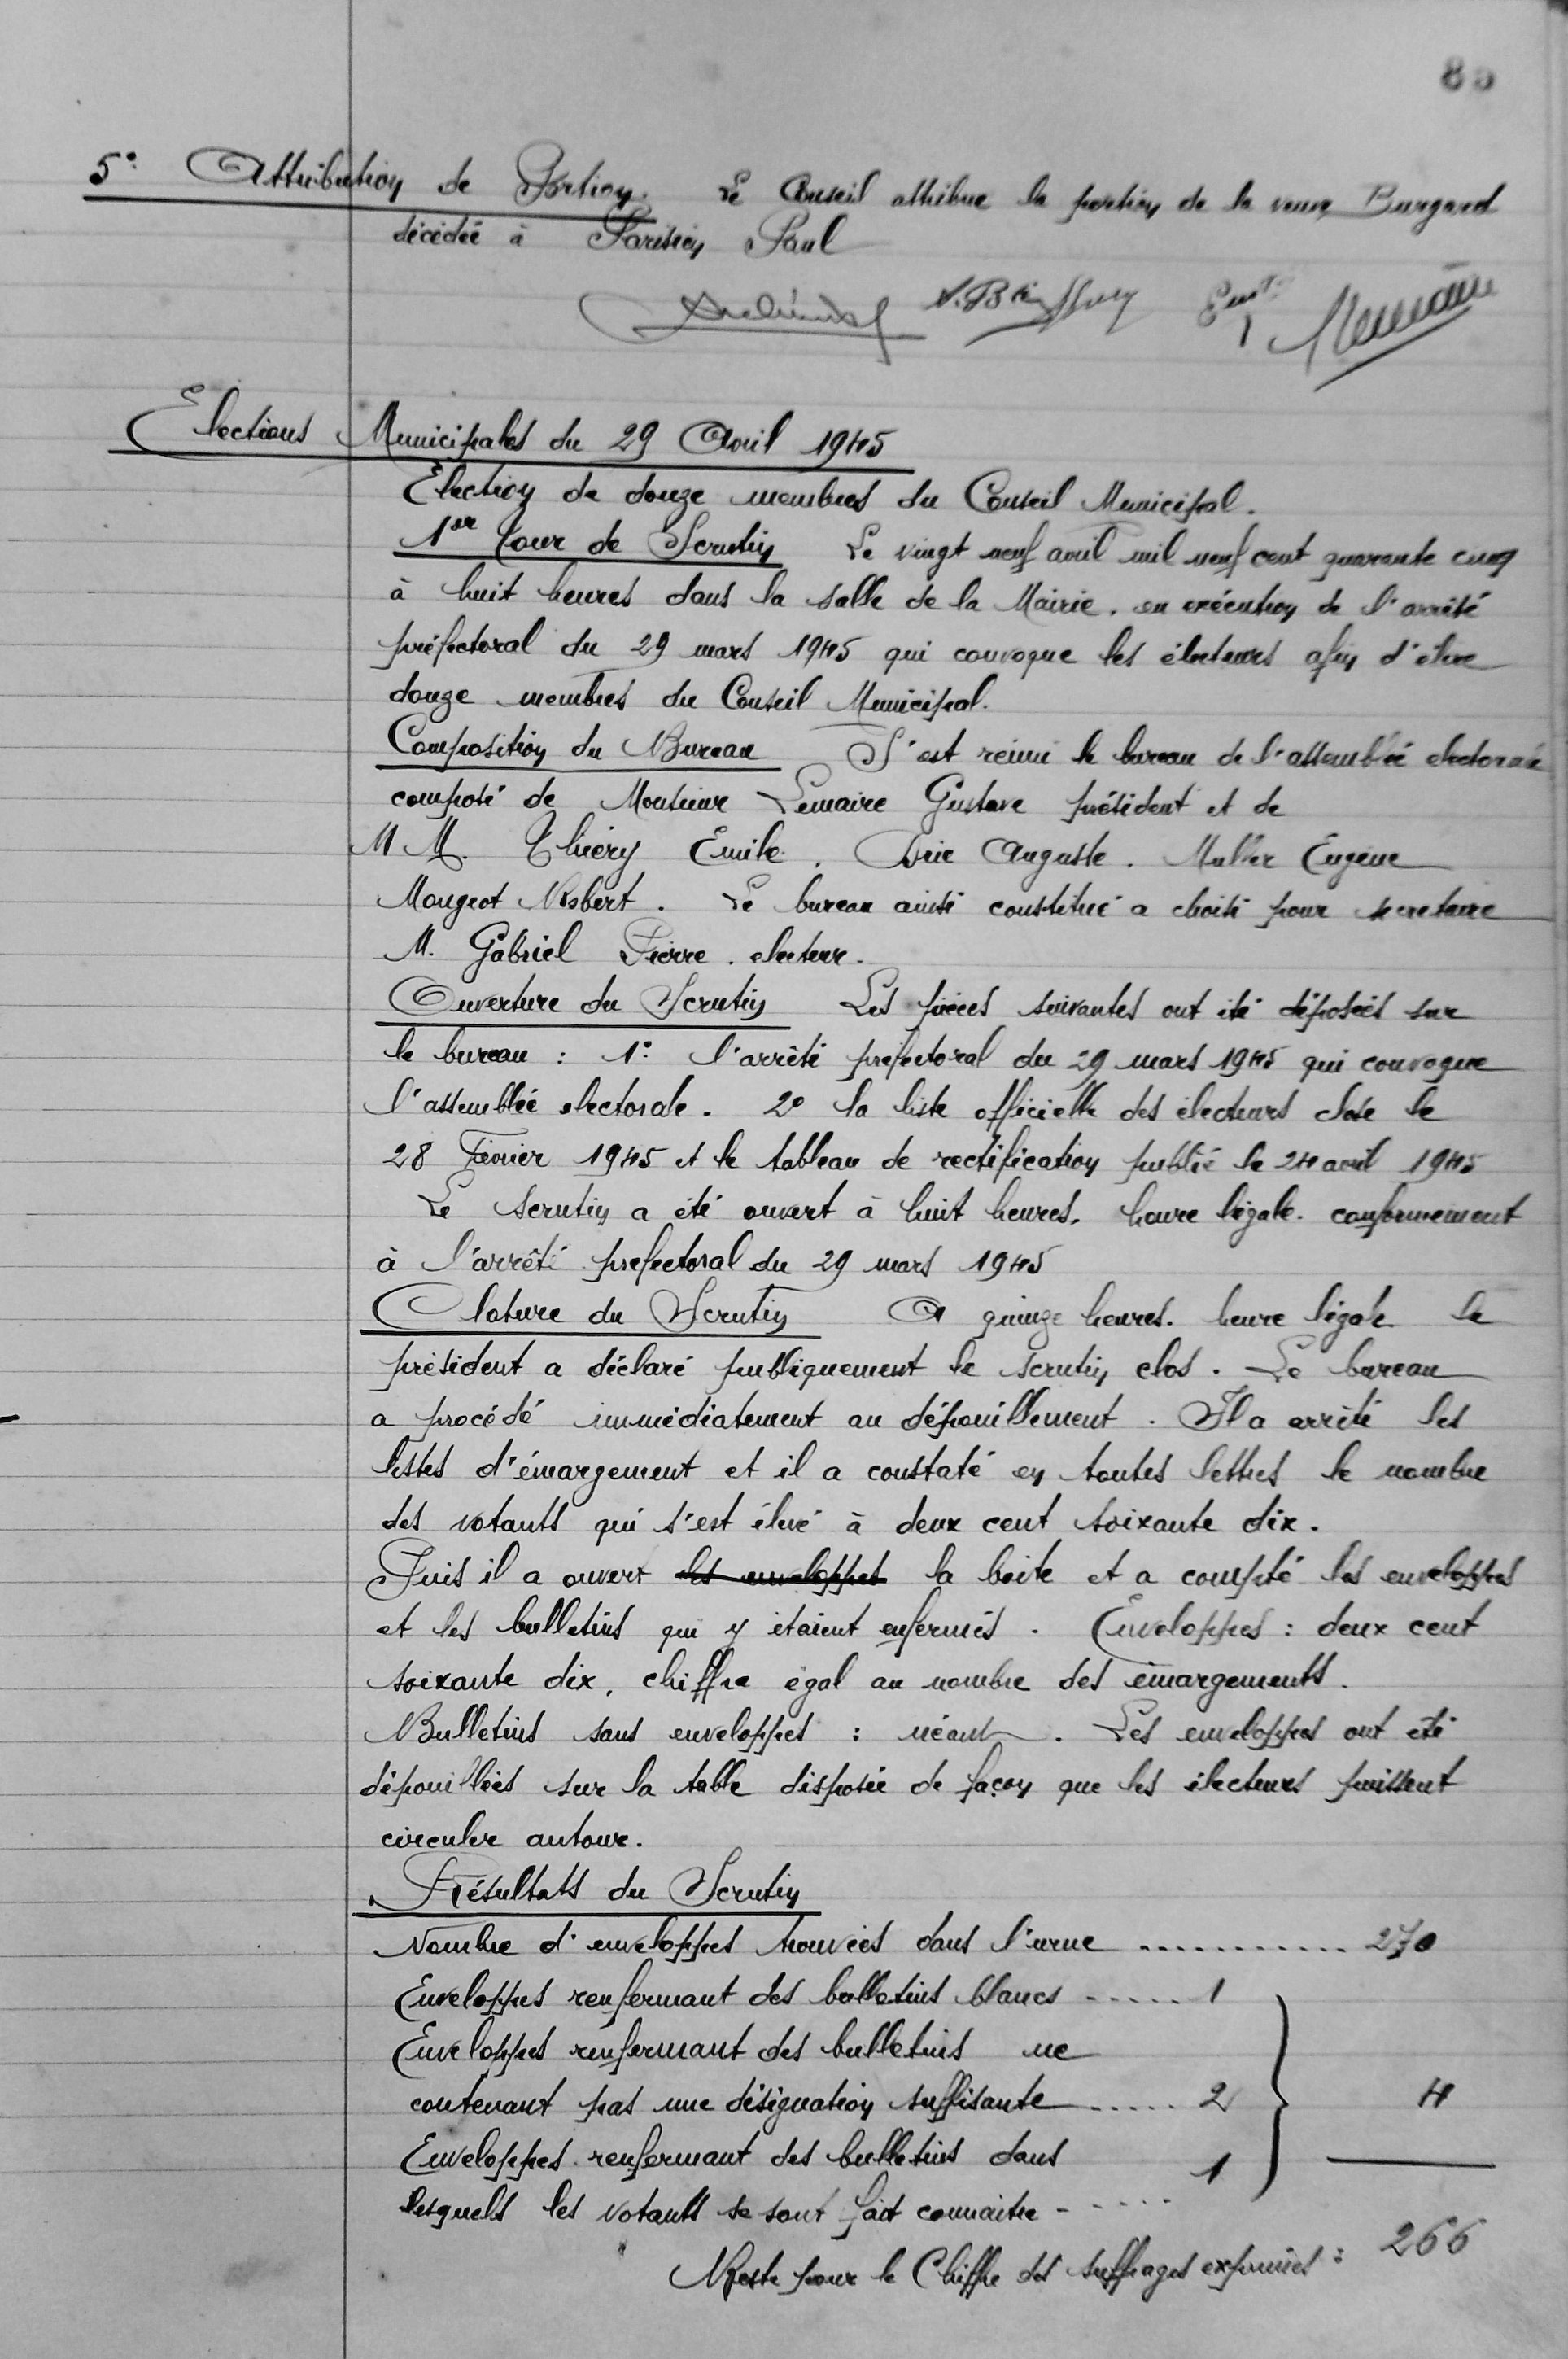 5° Attribution de Portion. Le Conseil attribue la portion de la veuve Burgard
décédée à Parisien Paul
Elections Municipales du 29 Avril 1945
Election de douze membres du Conseil Municipal.
1er tour de Scrutin Le vingt neuf avril mil neuf cent quarante cinq
à huit heures dans la salle de la Mairie. en exécution de l'arrêté
préfectoral du 29 mars 1945 qui convoque les électeurs afin d'élire
douze membres du Conseil Municipal.
Composition du Bureau S'est réuni le bureau de l'assemblée electorale
composé de Monsieur Lemaire Gustave président et de
MM. Thiéry Emile. Auguste. Muller Eugène
Mougeot Robert. Le bureau ainsi constitué a choisi pour secretaire
M. Gabriel Pierre. electeur.
Ouverture du Scrutin Les pièces suivantes ont été déposées sur
le bureau : 1° l'arrêté préfectoral du 29 mars 1945 qui convoque
l'assemblée electorale. 2° la liste officielle des électeurs close le
28 Février 1945 et le tableau de rectification publié le 24 avril 1945
Le scrutin a été ouvert à huit heures. heure légale. conformement
à l'arrêté prefectoral du 29 mars 1945
Cloture du Scrutin A quinze heures. heure légale le
président a déclaré publiquement le scrutin clos. Le bureau
a procédé immédiatement au dépouillement. Il a arrêté les
listes d'émargement et il a constaté en toutes lettres le nombre
des votants qui s'est élevé à deux cent soixante dix.
Puis il a ouvert les enveloppes la boite et a compté les enveloppes
et les bulletins qui y étaient enfermés. Enveloppes : deux cent
soixante dix, chiffre égal au nombre des émargements.
Bulletins sans enveloppes : néant. Les enveloppes ont été
dépouillées sur la table disposée de façon que les électeurs puissent
circuler autour.
Résultats du Scrutin
Nombre d'enveloppes trouvées dans l'urne ............ 270
Enveloppes renfermant des bulletins blancs ..... 1
Enveloppes renfermant des bulletins ne
contenant pas une désignation suffisante ..... 2 4
Enveloppes renfermant des bulletins dans 1
lesquels les votants se sont fait connaitre .....
Reste pour le Chiffre des suffrages exprimés : 266